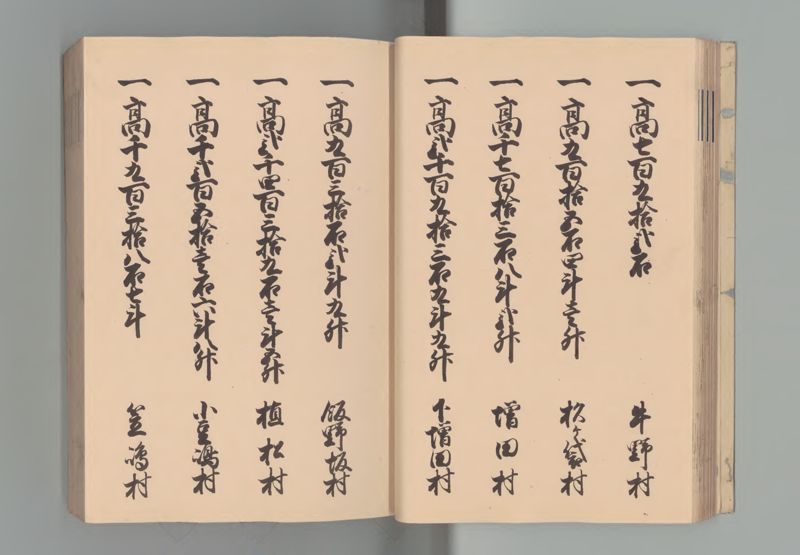 一 高七百九拾弐石 牛野村
一 高九百拾五石四斗壱升 杉ヶ袋村
一 高千七百拾三石八斗弐升 増田村
一 高弐千百九拾三石九斗九升 下増田村
一 高九百三拾石弐斗九升 飯野坂村
一 高弐千四百三拾九石壱斗五升 植松村
一 高千弐百五拾壱石六斗八升 小豆嶋村
一 高千九百三拾八石七斗 笠嶋村